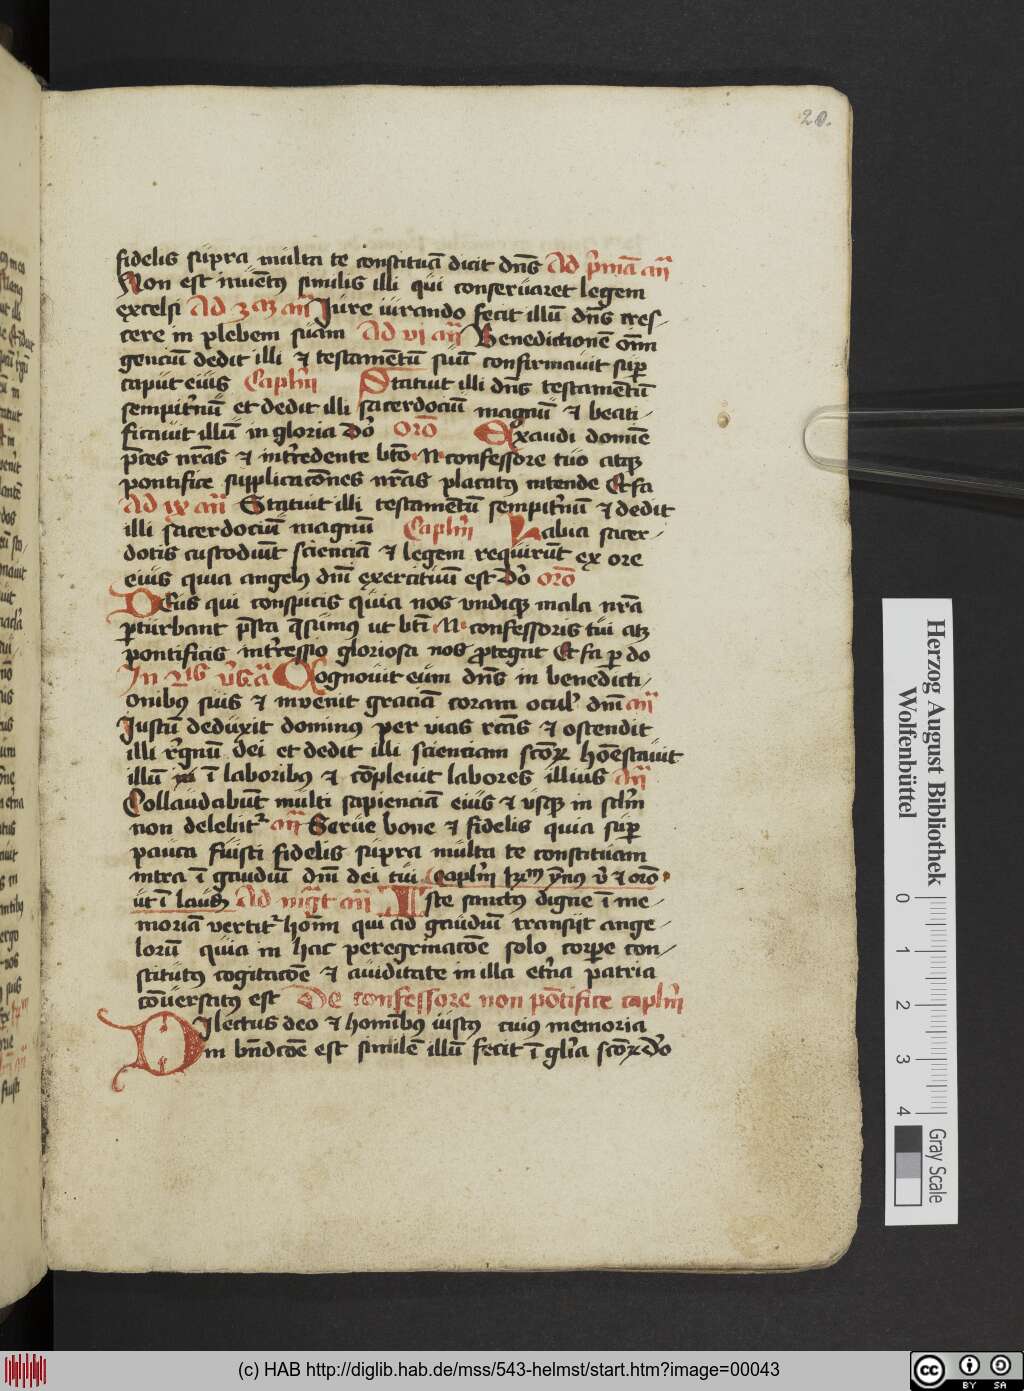 20.
fidelis supra multa te constituā dicit dn̄s Ad p̄mā an̄
Non est invētꝰ similis illi qui conservaret legem
excelsi Ad 3am an̄ Jure iurando fecit illū dn̄s cres-
cere in plebem suam Ad vi an̄ Benedictionē om̄
genciū dedit illi ⁊ testamētū suū confirmavit sup̄
caput eius Caplm̄ Statuit illi dn̄s testamētū
sempit̄nū et dedit illi sacerdociū magnū ⁊ beati-
ficavit illū in gloria Do᷑ Oro᷑ Exaudi domine
p̄ces nr̄as ⁊ int̄cedente bt̄o N confessore tuo atqꝫ
pontifice supplicacōnes nr̄as placatꝰ intende Et fa
Ad ix an̄ Statuit illi testamētū sempit̄nū ⁊ dedit
illi sacerdociū magnū Caplm̄ Labia sacer-
dotis custodiūt scienciā ⁊ legem requirūt ex ore
eius quia angelꝰ dn̄i exercituū est Do᷑ oro᷑
Deus qui conspicis quia nos undiqꝫ mala nr̄a
ꝑturbant p̄sta q̄sumꝰ ut bt̄i N confessoris tui atqꝫ
pontificis int̄cessio gloriosa nos ꝓtegat Et fa ꝑ do
Cognovit eum dn̄s in benedicti-
onibꝰ suis ⁊ invenit graciā coram ocul᷒ dn̄i an̄
Justū deduxit dominꝰ per vias rectas ⁊ ostendit
illi r̄gnū dei et dedit illi scienciam sctōꝝ honestavit
illū ī laboribꝰ ⁊ cōplevit labores illius an̄
Collaudabūt multi sapienciā eius ⁊ usqꝫ in sclm̄
non delebit᷑ an̄ Serve bone ⁊ fidelis quia sup̄
pauca fuisti fidelis supra multa te constituam
intra ī gaudiū dn̄i dei tui Caplm̄ ymn᷒ v̄ ⁊ oro᷑
ut ī laud᷒ Ad mg̅t an̄ Iste sanctꝰ digne ī me-
moriā vertit᷑ hoīm qui ad gaudiū transiit ange-
lorū quia in hac peregrinacōe solo corꝑe con-
stitutꝰ cogitacōe ⁊ aviditate in illa et̄na patria
cōversatꝰ est De confessore non pōtifice caplm̄
Dilectus deo ⁊ homibꝰ iustꝰ cuiꝰ memoria
in bn̄dcōe est similē illū fecit ī gl̄ia scōꝝ Do᷑
Herzog August Bibliothek
Wolfenbüttel
0 1 2 3 4
Gray Scale
(c) HAB http://diglib.hab.de/mss/543-helmst/start.htm?image=00043
cc BY SA